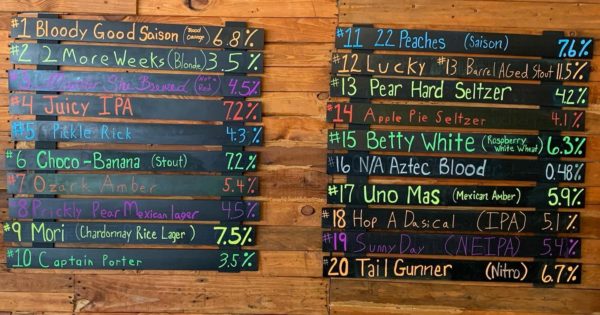 #1 Bloody Good Saison (Blood Orange) 6.8%
#2 2 More Weeks (Blonde) 3.5%
#3 She Brewed 4.5%
#4 Juicy IPA 7.2%
#5 Pickle Rick 4.3%
#6 Choco-Banana (Stout) 7.2%
#7 Ozark Amber 5.4%
#8 Prickly Pear Mexican lager 4.5%
#9 Mori (Chardonnay Rice Lager) 7.5%
#10 Captain Porter 3.5%
#11 22 Peaches (Saison) 7.6%
#12 Lucky #13 Barrel Aged Stout 11.5%
#13 Pear Hard Seltzer 4.2%
#14 Apple Pie Seltzer 4.1%
#15 Betty White (Raspberry White Wheat) 6.3%
#16 N/A Aztec Blood 0.48%
#17 Uno Mas (Mexican Amber) 5.9%
#18 Hop A Dasical (IPA) 5.1%
#19 Sunny Day (NEIPA) 5.4%
#20 Tail Gunner (Nitro) 6.7%